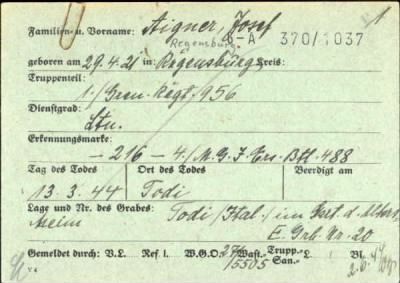 Familien- u. Vorname: Aigner, Josef
Regensburg G-A 370/1037
geboren am 29.4.21 in Regensburg Kreis:
Truppenteil:
1./Gren. Regt. 956
Dienstgrad:
Ltn.
Erkennungsmarke:
- 216 - 4./M.G.J. Ers. Btl. 488
Tag des Todes Ort des Todes Beerdigt am
13.3.44 Todi
Lage und Nr. des Grabes: Todi/Ital./im Gart. d.
E. Grb. Nr. 20
Gemeldet durch: V.L. Ref I. W.G.O. Wast.- Trupp.- San.- L. Bl.
/5505 2.6.47